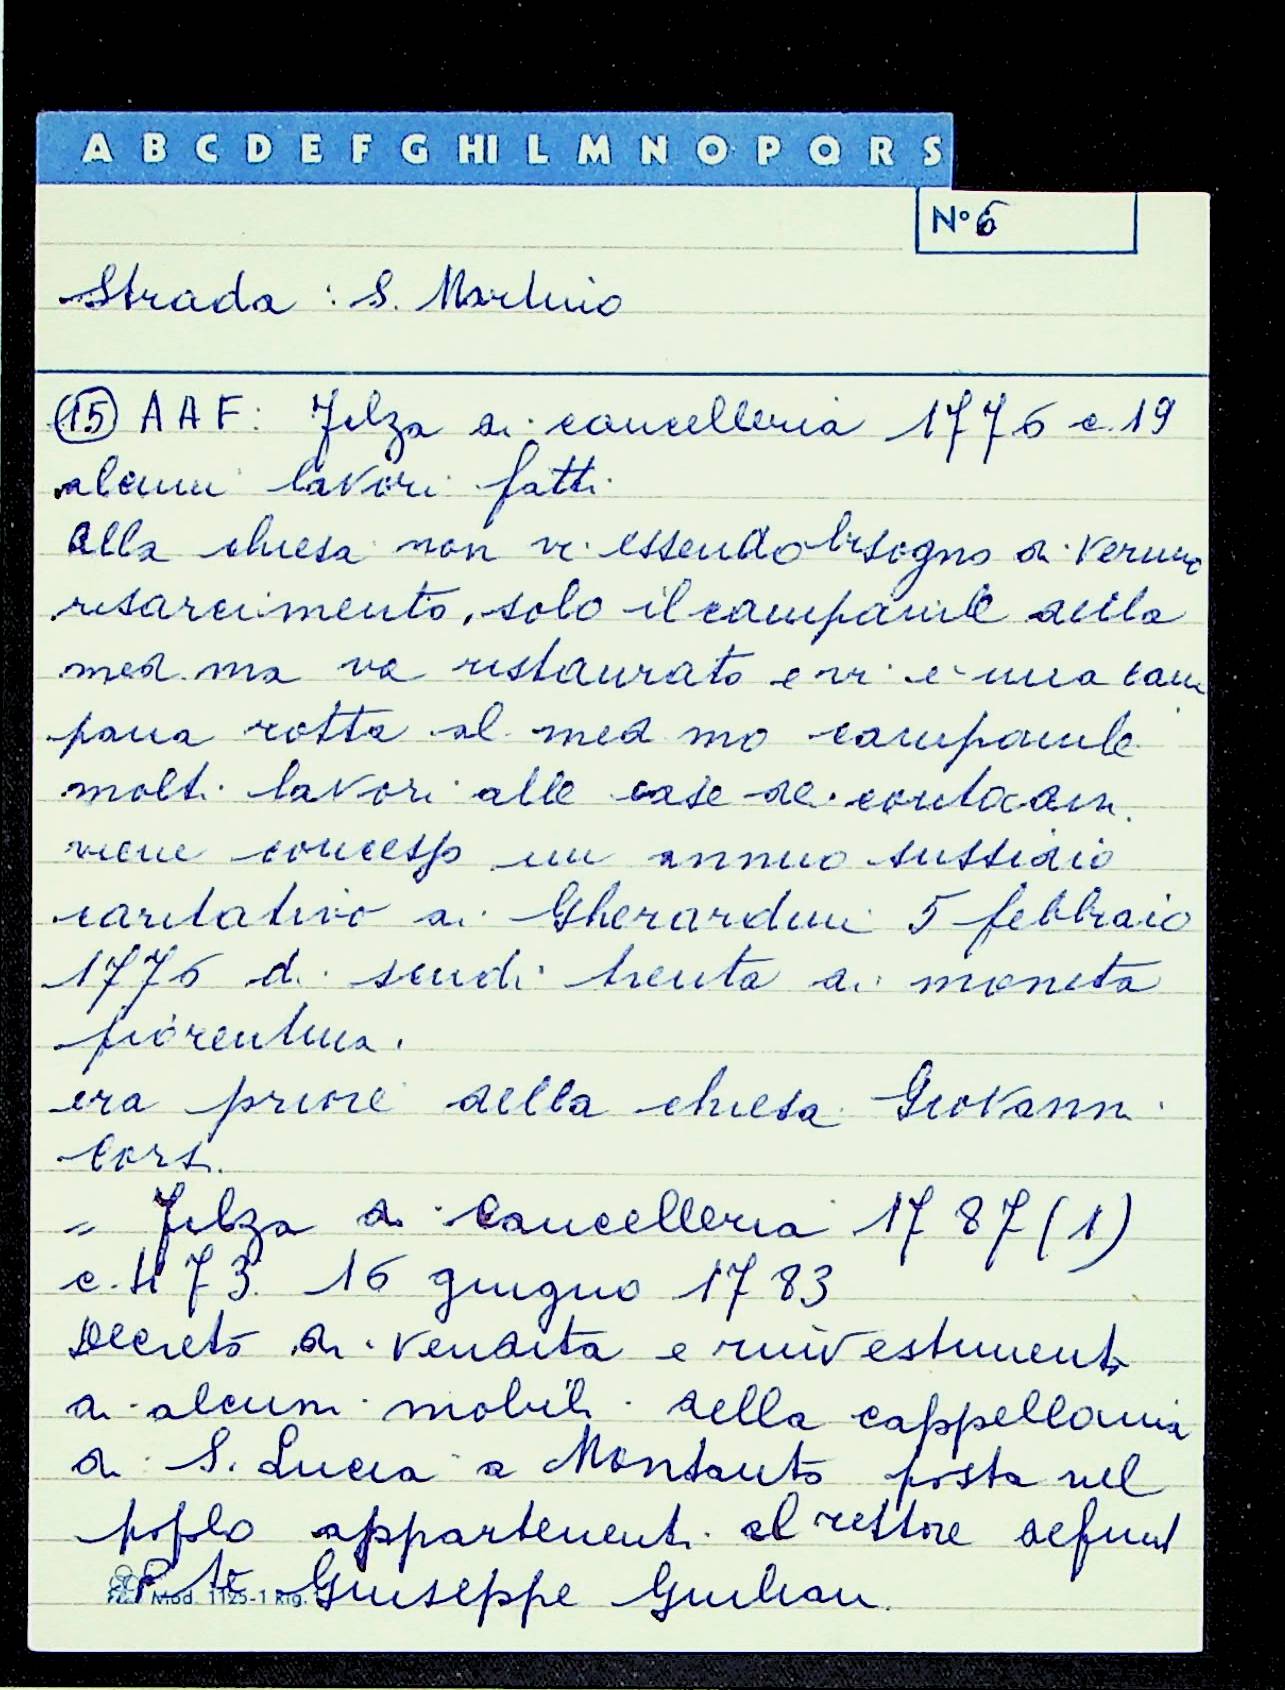 A B C D E F G HI L M N O P Q R S
N° 6
Strada : S. Martino
(15) A A F : Filza di cancelleria 1776 c. 19
alcuni lavori fatti
alla chiesa non vi essendo bisogno di veruno
risarcimento, solo il campanile della
med.ma va restaurato e vi è una cam
pana rotta al med mo campanile
molti lavori alle case de contadini
viene concesso un annuo sussidio
caritativo a Gherardini 5 febbraio
1776 di scudi trenta di moneta
fiorentina.
era priore della chiesa Giovanni
Corsi.
" Filza di Cancelleria 1787 (1)
c. 473. 16 giugno 1783
Decreto di vendita e rinvestimento
di alcuni mobili della cappellania
di S. Lucia a Montauto posta nel
popolo appartenenti al rettore defunt
P te Giuseppe Giuliani
Mod. 1125-1 Rig.